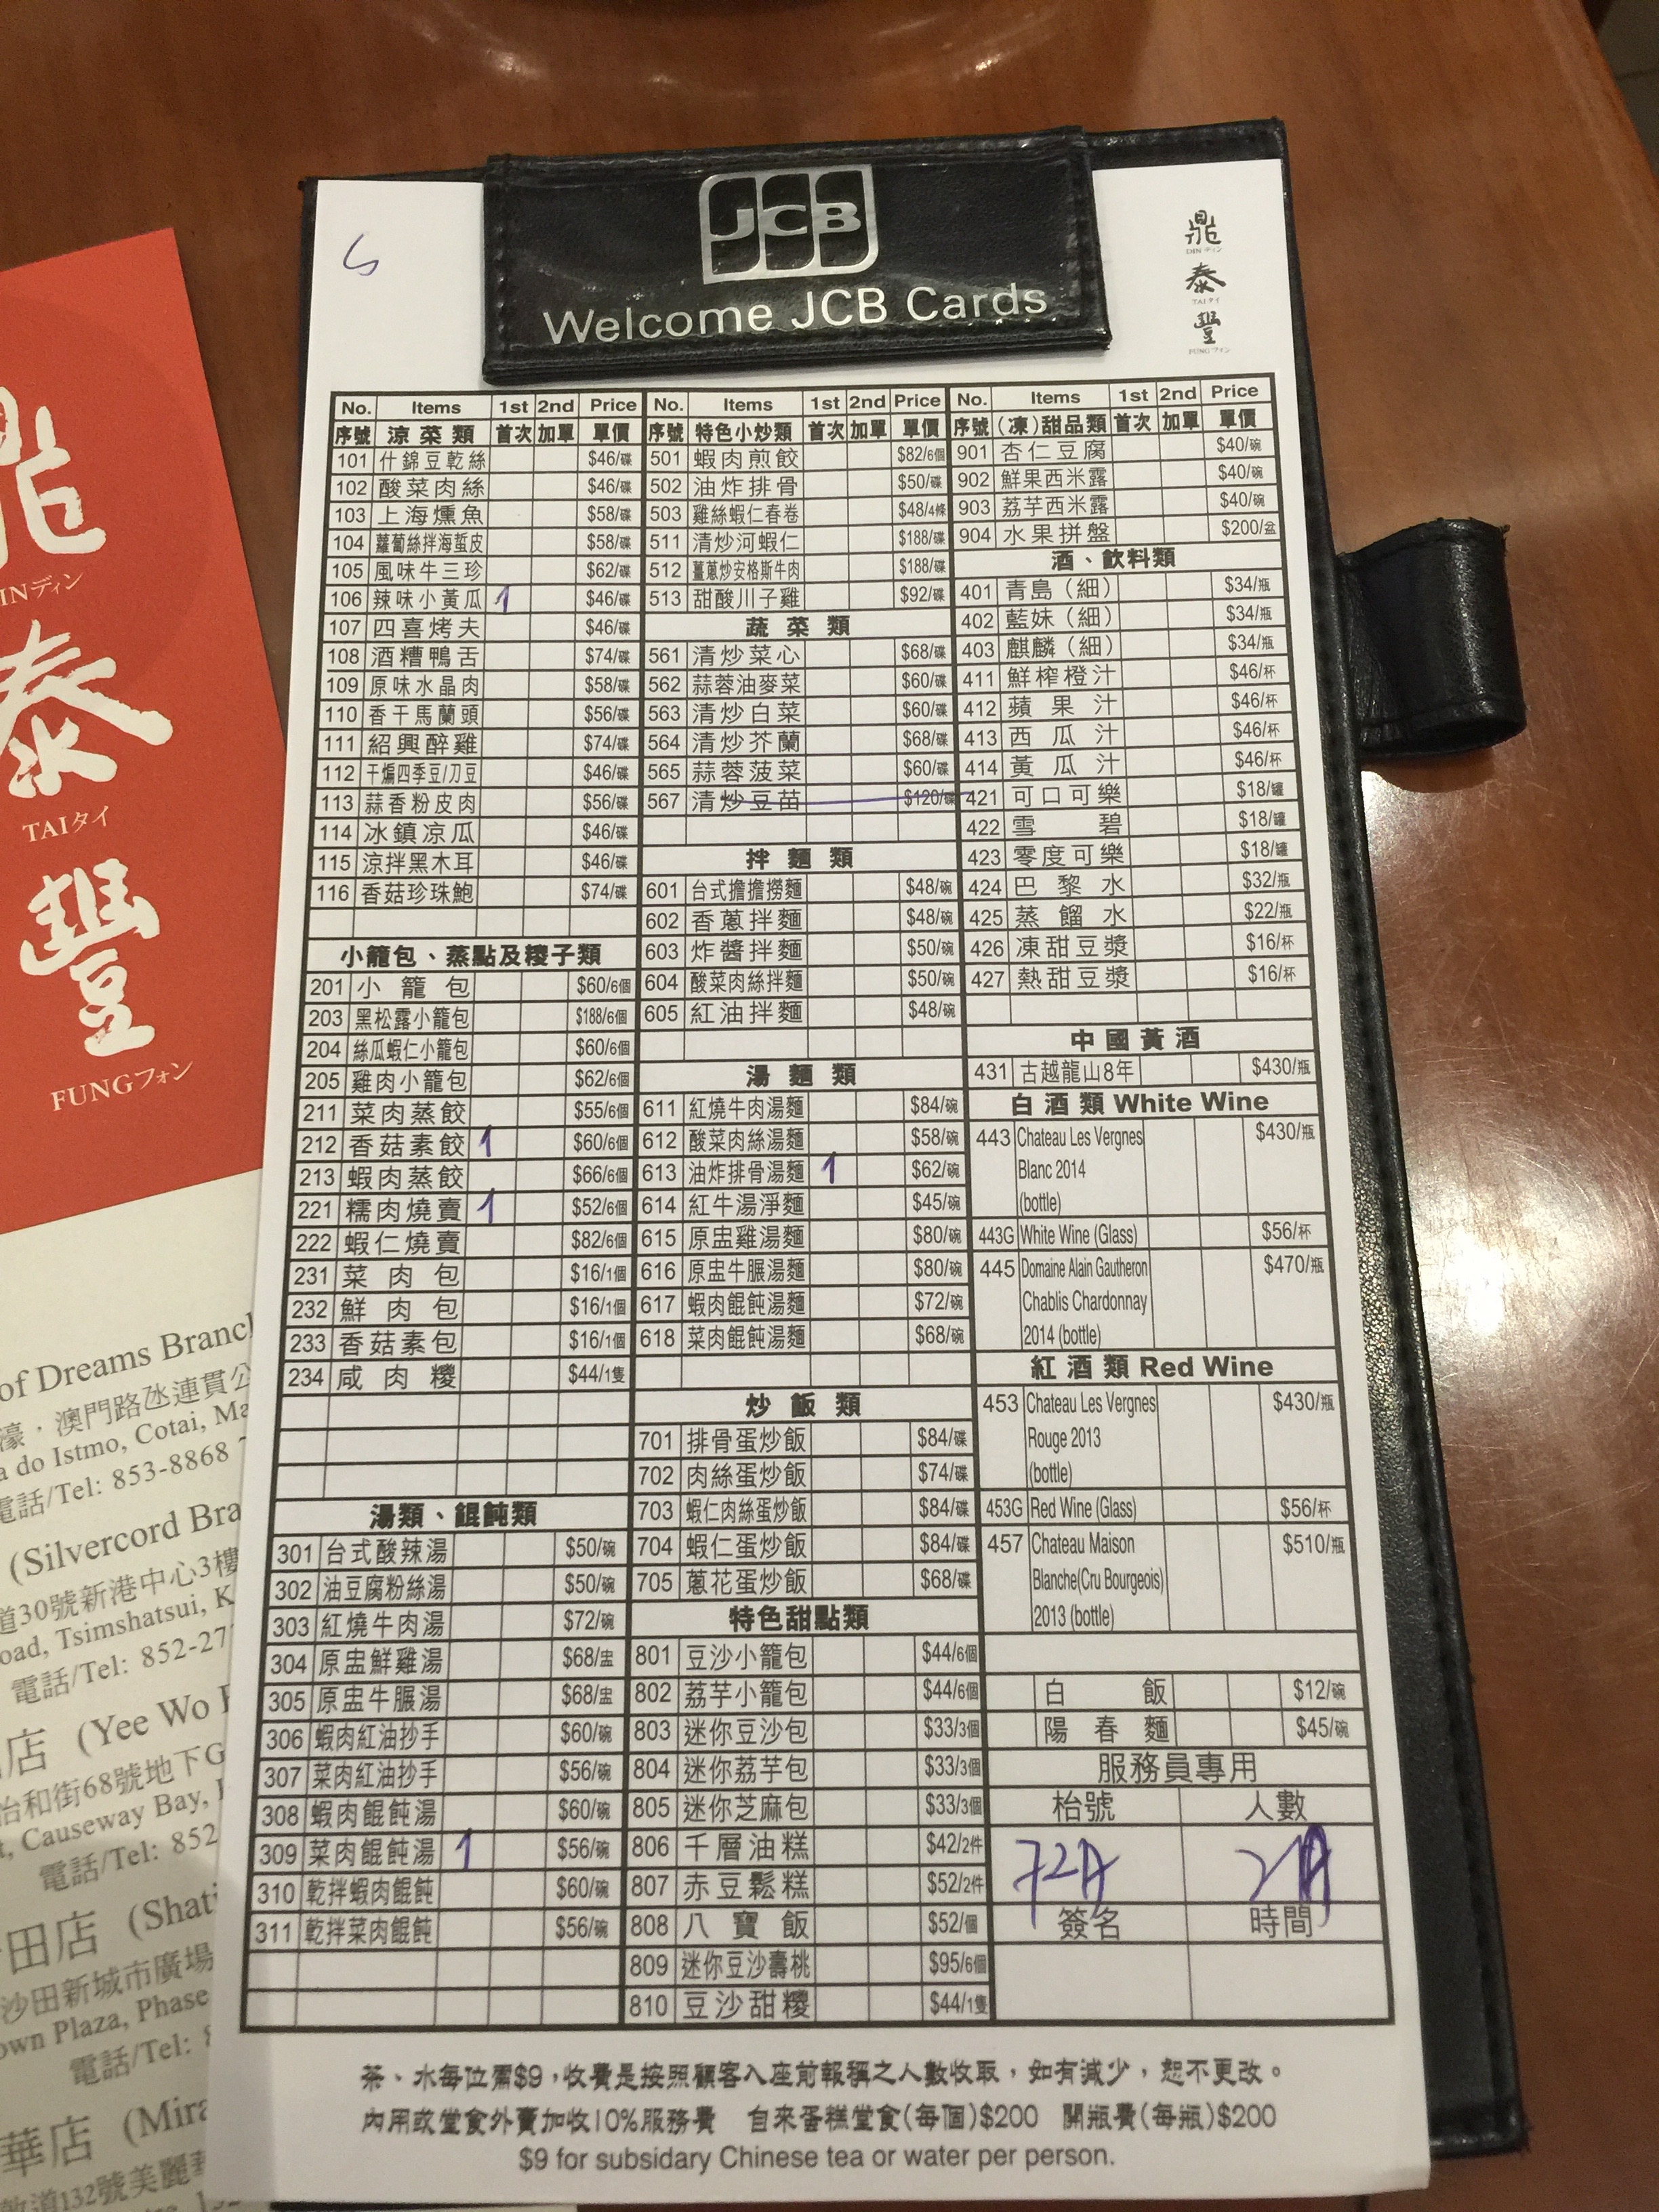 JCB
Welcome JCB Cards
鼎
DIN ディン
泰
TAI タイ
豐
FUNG フォン
No. Items 1st 2nd Price
序號 涼菜類 首次 加單 單價
101 什錦豆乾絲 $46/碟
102 酸菜肉絲 $46/碟
103 上海燻魚 $58/碟
104 蘿蔔絲拌海蜇皮 $58/碟
105 風味牛三珍 $62/碟
106 辣味小黃瓜 1 $46/碟
107 四喜烤夫 $46/碟
108 酒糟鴨舌 $74/碟
109 原味水晶肉 $58/碟
110 香干馬蘭頭 $56/碟
111 紹興醉雞 $74/碟
112 干煸四季豆/刀豆 $46/碟
113 蒜香粉皮肉 $56/碟
114 冰鎮凉瓜 $46/碟
115 涼拌黑木耳 $46/碟
116 香菇珍珠鮑 $74/碟
小籠包、蒸點及糭子類
201 小籠包 $60/6個
203 黑松露小籠包 $188/6個
204 絲瓜蝦仁小籠包 $60/6個
205 雞肉小籠包 $62/6個
211 菜肉蒸餃 $55/6個
212 香菇素餃 1 $60/6個
213 蝦肉蒸餃 $66/6個
221 糯肉燒賣 1 $52/6個
222 蝦仁燒賣 $82/6個
231 菜肉包 $16/1個
232 鮮肉包 $16/1個
233 香菇素包 $16/1個
234 咸肉糭 $44/1隻
湯類、餛飩類
301 台式酸辣湯 $50/碗
302 油豆腐粉絲湯 $50/碗
303 紅燒牛肉湯 $72/碗
304 原盅鮮雞湯 $68/盅
305 原盅牛𦟌湯 $68/盅
306 蝦肉紅油抄手 $60/碗
307 菜肉紅油抄手 $56/碗
308 蝦肉餛飩湯 $60/碗
309 菜肉餛飩湯 1 $56/碗
310 乾拌蝦肉餛飩 $60/碗
311 乾拌菜肉餛飩 $56/碗
No. Items 1st 2nd Price
序號 特色小炒類 首次 加單 單價
501 蝦肉煎餃 $82/6個
502 油炸排骨 $50/碟
503 雞絲蝦仁春卷 $48/4條
511 清炒河蝦仁 $188/碟
512 薑蔥炒安格斯牛肉 $188/碟
513 甜酸川子雞 $92/碟
蔬菜類
561 清炒菜心 $68/碟
562 蒜蓉油麥菜 $60/碟
563 清炒白菜 $60/碟
564 清炒芥蘭 $68/碟
565 蒜蓉菠菜 $60/碟
567 清炒豆苗 $120/碟
拌麵類
601 台式擔擔撈麵 $48/碗
602 香蔥拌麵 $48/碗
603 炸醬拌麵 $50/碗
604 酸菜肉絲拌麵 $50/碗
605 紅油拌麵 $48/碗
湯麵類
611 紅燒牛肉湯麵 $84/碗
612 酸菜肉絲湯麵 $58/碗
613 油炸排骨湯麵 1 $62/碗
614 紅牛湯淨麵 $45/碗
615 原盅雞湯麵 $80/碗
616 原盅牛𦟌湯麵 $80/碗
617 蝦肉餛飩湯麵 $72/碗
618 菜肉餛飩湯麵 $68/碗
炒飯類
701 排骨蛋炒飯 $84/碟
702 肉絲蛋炒飯 $74/碟
703 蝦仁肉絲蛋炒飯 $84/碟
704 蝦仁蛋炒飯 $84/碟
705 蔥花蛋炒飯 $68/碟
特色甜點類
801 豆沙小籠包 $44/6個
802 荔芋小籠包 $44/6個
803 迷你豆沙包 $33/3個
804 迷你荔芋包 $33/3個
805 迷你芝麻包 $33/3個
806 千層油糕 $42/2件
807 赤豆鬆糕 $52/2件
808 八寶飯 $52/個
809 迷你豆沙壽桃 $95/6個
810 豆沙甜糭 $44/1隻
No. Items 1st 2nd Price
序號 (凍)甜品類 首次 加單 單價
901 杏仁豆腐 $40/碗
902 鮮果西米露 $40/碗
903 荔芋西米露 $40/碗
904 水果拼盤 $200/盆
酒、飲料類
401 青島(細) $34/瓶
402 藍妹(細) $34/瓶
403 麒麟(細) $34/瓶
411 鮮榨橙汁 $46/杯
412 蘋果汁 $46/杯
413 西瓜汁 $46/杯
414 黃瓜汁 $46/杯
421 可口可樂 $18/罐
422 雪碧 $18/罐
423 零度可樂 $18/罐
424 巴黎水 $32/瓶
425 蒸餾水 $22/瓶
426 凍甜豆漿 $16/杯
427 熱甜豆漿 $16/杯
中國黃酒
431 古越龍山8年 $430/瓶
白酒類 White Wine
443 Chateau Les Vergnes $430/瓶
Blanc 2014
(bottle)
443G White Wine (Glass) $56/杯
445 Domaine Alain Gautheron $470/瓶
Chablis Chardonnay
2014 (bottle)
紅酒類 Red Wine
453 Chateau Les Vergnes $430/瓶
Rouge 2013
(bottle)
453G Red Wine (Glass) $56/杯
457 Chateau Maison $510/瓶
Blanche(Cru Bourgeois)
2013 (bottle)
白飯 $12/碗
陽春麵 $45/碗
服務員專用
枱號 人數
72A
簽名 時間
茶、水每位需$9,收費是按照顧客入座前報稱之人數收取,如有減少,恕不更改。
內用或堂食外賣加收10%服務費 自來蛋糕堂食(每個)$200 開瓶費(每瓶)$200
$9 for subsidary Chinese tea or water per person.
鼎
DIN ディン
泰
TAI タイ
豐
FUNG フォン
of Dreams Branch
濠·澳門路氹連貫公
do Istmo, Cotai, Ma
電話/Tel: 853-8868
(Silvercord Bra
道30號新港中心3樓
oad, Tsimshatsui, K
電話/Tel: 852-27
店 (Yee Wo
怡和街68號地下G
t, Causeway Bay,
電話/Tel: 852
田店 (Shati
沙田新城市廣場
own Plaza, Phase
電話/Tel:
華店 (Mira
敦道132號美麗華